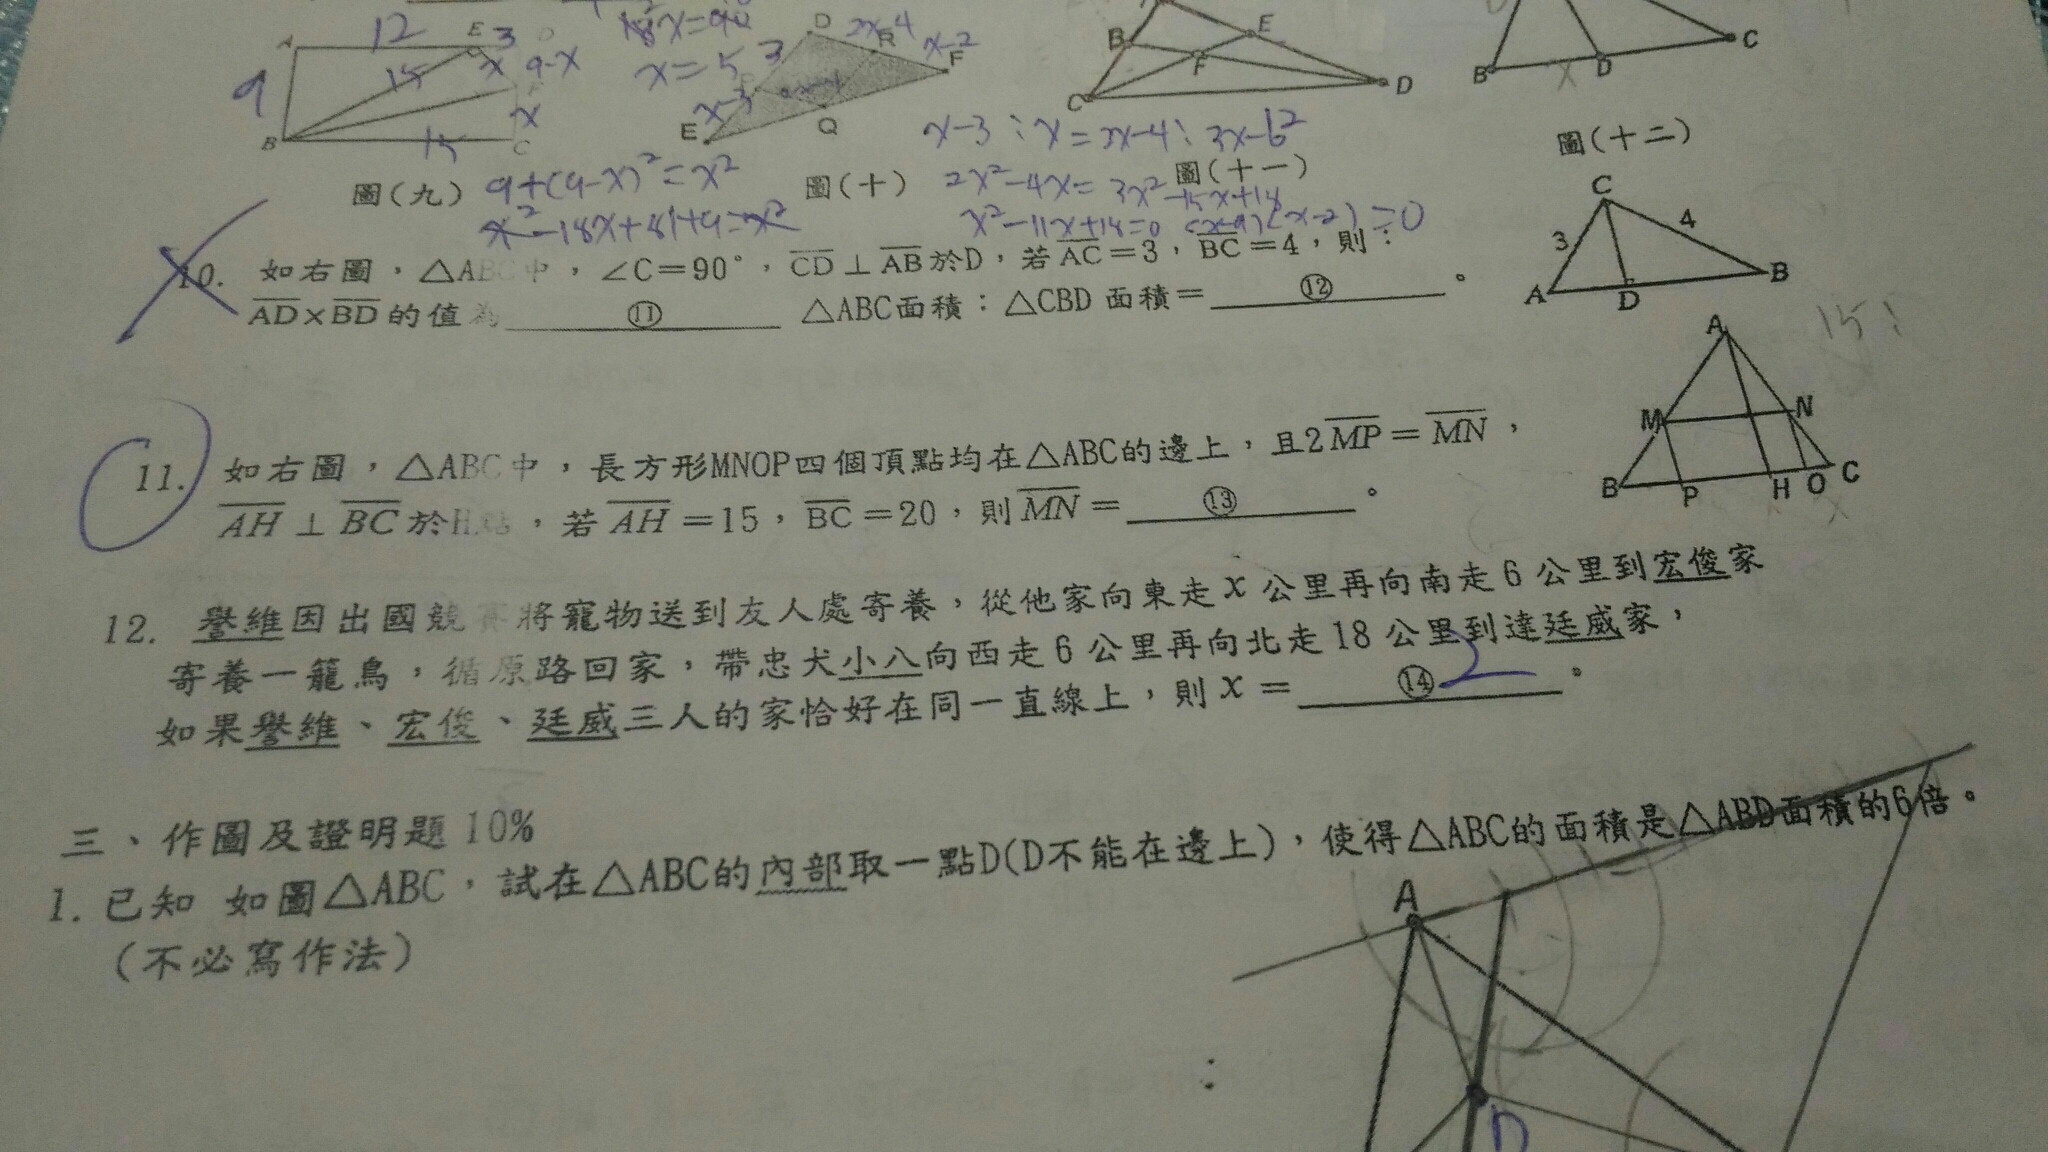 12 E 3
A 9 15 x 9-x
B 15 C x
x=5
D 3 2x-4 R x-2 F
x-3 E Q
B E F C D
B D C
x-3:x=2x-4:3x-6
圖(九) 9+(9-x)²=x² 圖(十) 圖(十一) 圖(十二)
x²-18x+81+9=x² x²-11x+18=0 (x-9)(x-2)=0
10. 如右圖,△ABC中,∠C=90°,CD⊥AB於D,若AC=3,BC=4,則:
AD×BD的值為 ⑪ △ABC面積:△CBD面積= ⑫ 。
C 3 4 A D B
11. 如右圖,△ABC中,長方形MNOP四個頂點均在△ABC的邊上,且2MP=MN,
AH⊥BC於H點,若AH=15,BC=20,則MN= ⑬ 。
A M N B P H O C
15:
12. 譽維因出國競賽將寵物送到友人處寄養,從他家向東走x公里再向南走6公里到宏俊家
寄養一籠鳥,循原路回家,帶忠犬小八向西走6公里再向北走18公里到達廷威家,
如果譽維、宏俊、廷威三人的家恰好在同一直線上,則x= ⑭ 2 。
三、作圖及證明題10%
1. 已知 如圖△ABC,試在△ABC的內部取一點D(D不能在邊上),使得△ABC的面積是△ABD面積的6倍。
(不必寫作法)
A
D